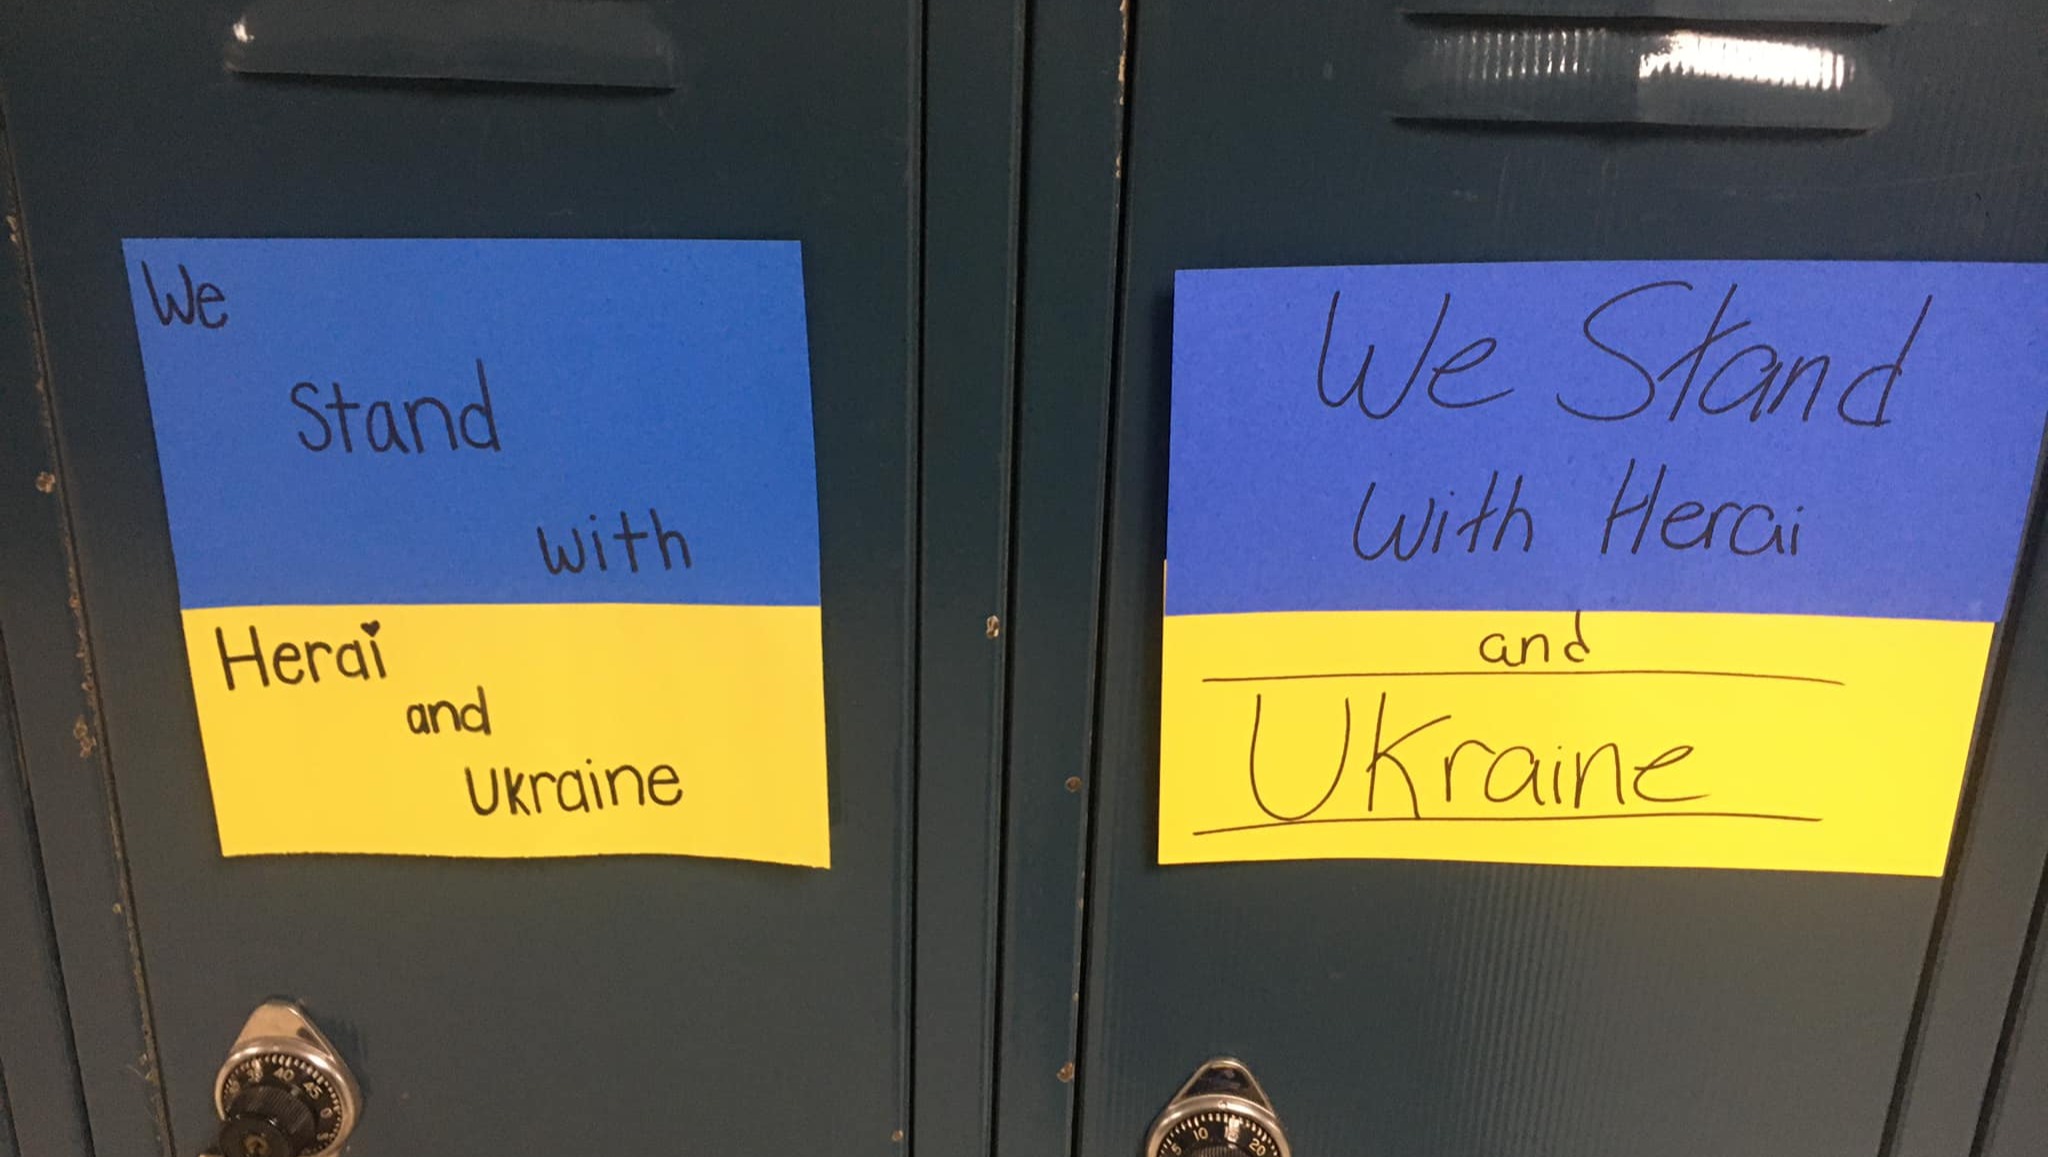 We
Stand
with
Herai
and
Ukraine
We Stand
with Herai
and
Ukraine
40 45 0
5 10 15 20